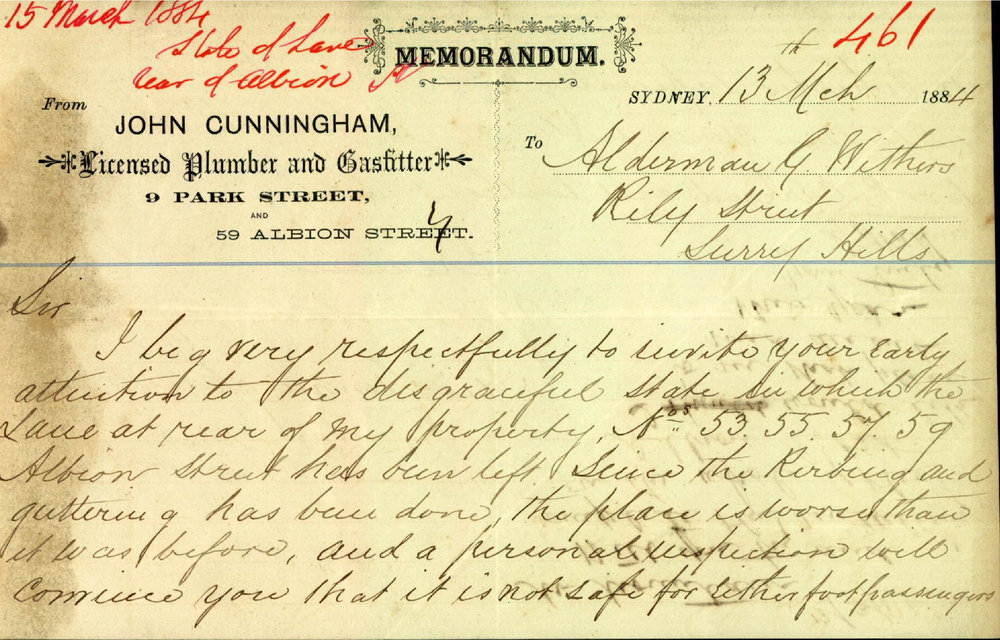 15 March 1884
State of Lane
rear of Albion St
461
MEMORANDUM.
From
JOHN CUNNINGHAM,
Licensed Plumber and Gasfitter
9 PARK STREET,
AND
59 ALBION STREET.
SYDNEY, 13th Mch 1884
To
Alderman G. Withers
Rily Street
Surry Hills
Sir
I beg very respectfully to invite your early
attention to the disgraceful state in which the
Lane at rear of my property, Nos 53. 55. 57. 59
Albion Street has been left. Since the Kerbing and
guttering has been done, the place is worse than
it was before, and a personal inspection will
convince you that it is not safe for either foot passengers